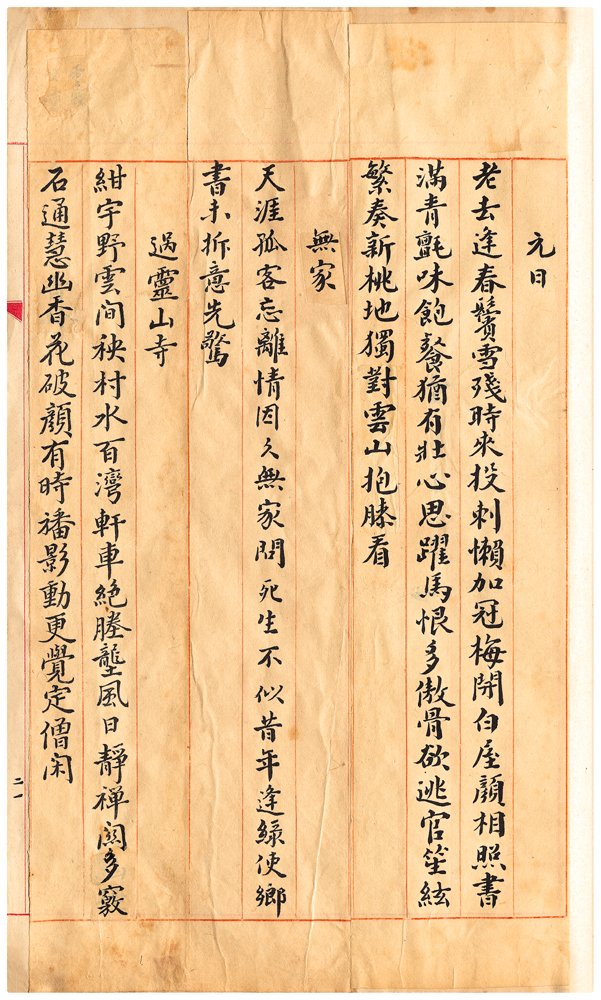 元日
老去逢春鬢雪殘時來投刺懶加冠梅開白屋顏相照書
滿青氈味飽餐猶有壯心思躍馬恨多傲骨欲逃官笙絃
繁奏新桃地獨對雲山抱膝看
無家
天涯孤客忘離情因久無家問死生不似昔年逢綠使鄉
書未拆意先驚
過靈山寺
紺宇野雲間秧村水百灣軒車絶塍壟風日靜禪關多竅
石通慧幽香花破顏有時旛影動更覺定僧閑
二一